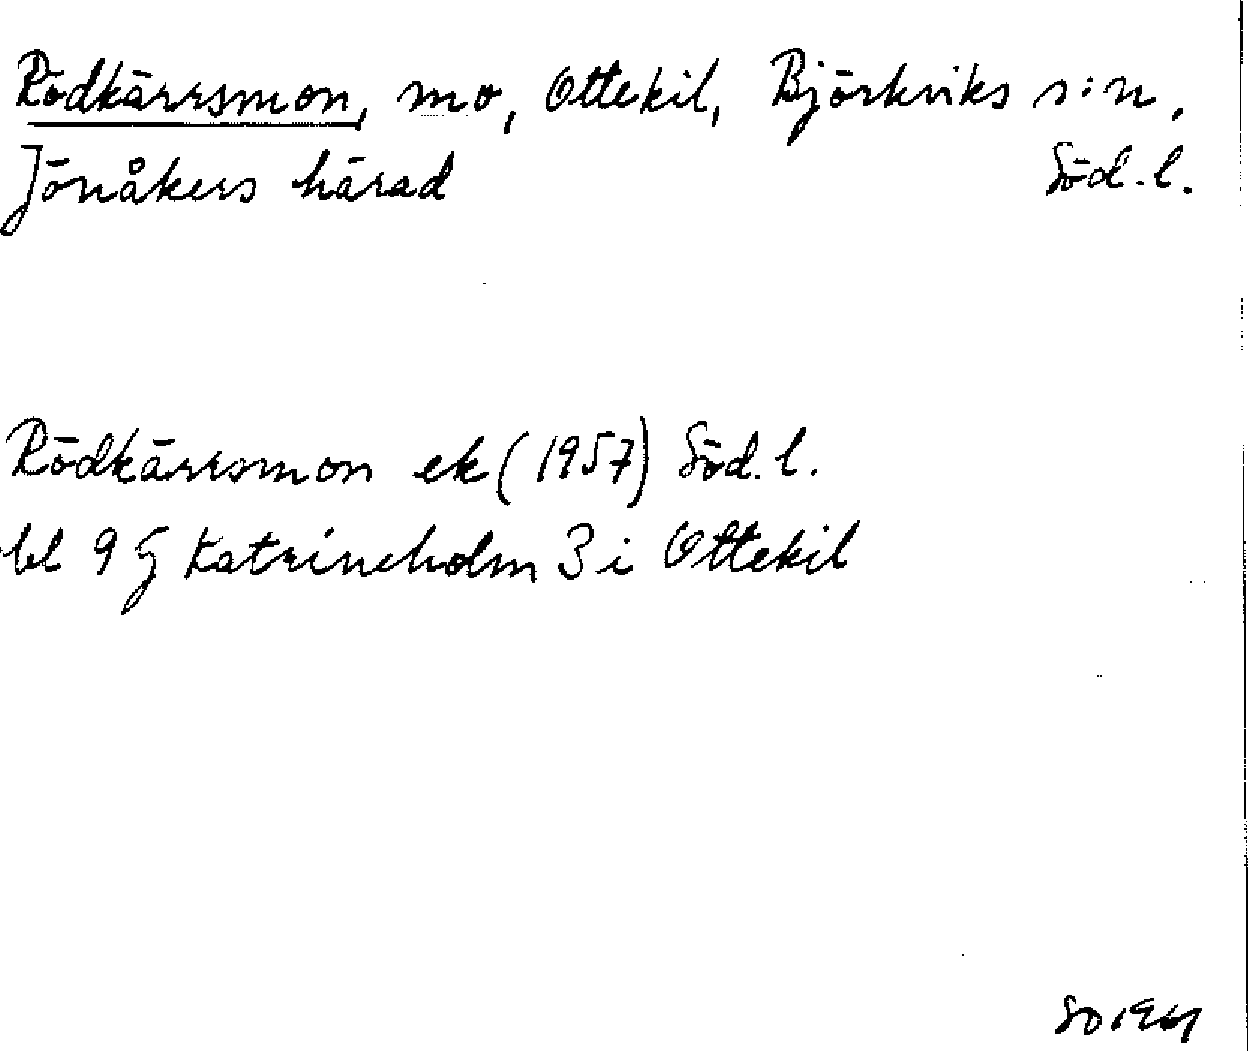 Rödkärrsmon, mo, Ottekil, Björkviks s:n,
Jönåkers härad Söd. l.
Rödkärrsmon ek (1957) Söd. l.
bl 9 G Katrineholm 3 i Ottekil